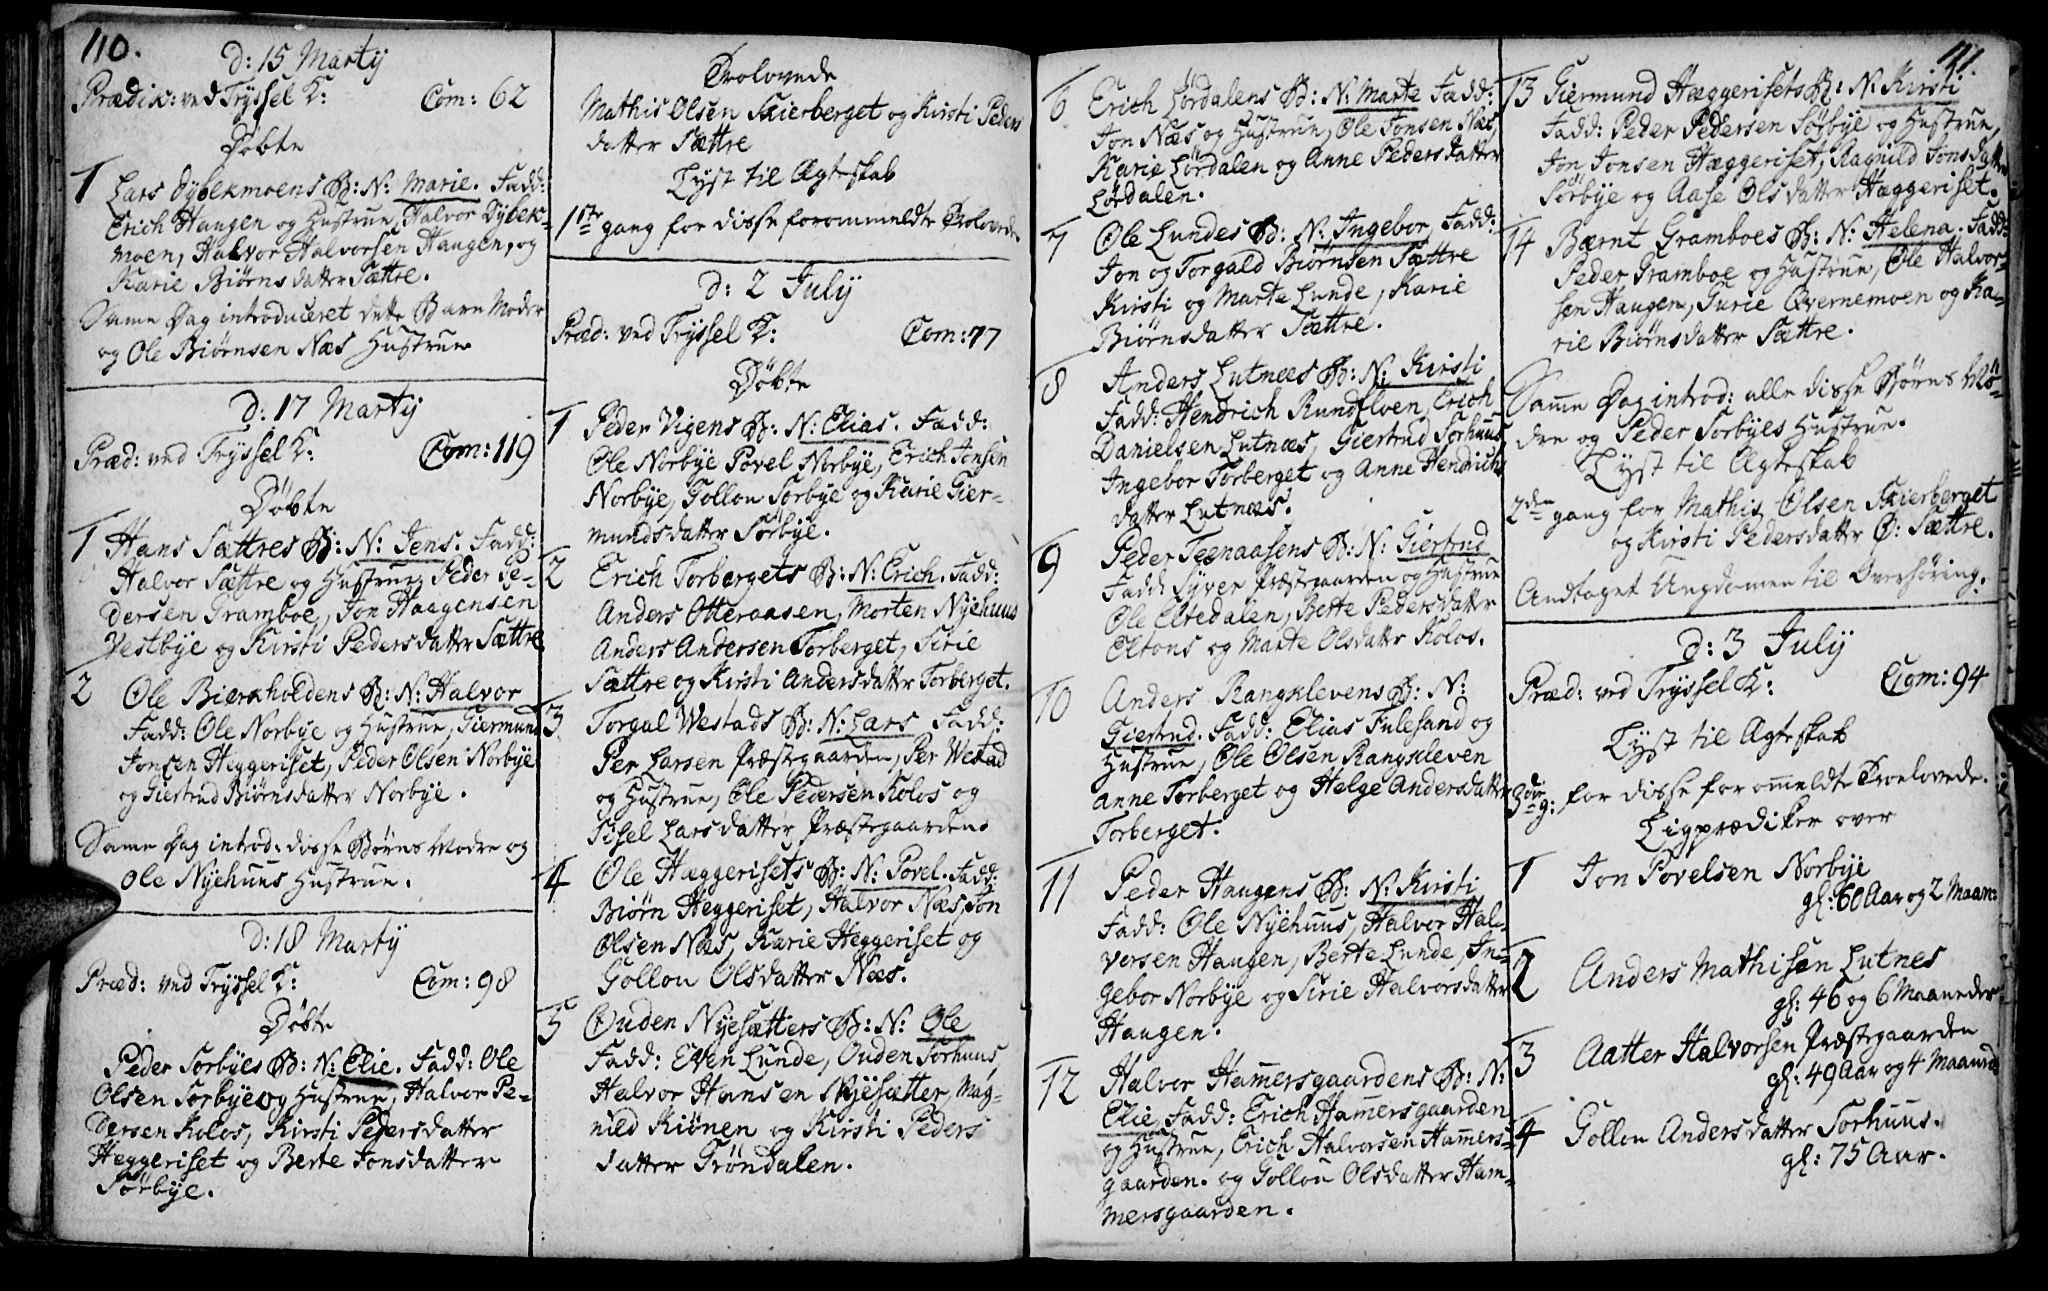 110.
d: 15 Martij
Prædik: ved Tryssel K: Com: 62
Døbte
1 Lars Dybekmoens B: N: Marie. Fadd:
Erich Haugen og Hustrue, Halvor Dybek-
moen, Halvor Halvorsen Haugen, og
Karie Biørnsdatter Sættre.
Same Dag introduceret dette Barns Moder
og Ole Biørnsen Næs Hustrue
d: 17 Martij
Præd: ved Tryssel K: Com: 119
Døbte
1 Hans Sættres B: N: Jens. Fadd:
Halvor Sættre og Hustrue, Peder Pe-
dersen Gramboe, Jon Haagensen
Vestbye og Kirsti Pedersdatter Sættre
2 Ole Bierkholdens B: N: Halvor
Fadd: Ole Norbye og Hustrue, Giermund
Jonsen Heggeriset, Peder Olsen Norbye
og Giertrud Biørnsdatter Norbye.
Same Dag introd: disse Børns Mødre og
Ole Nyehuus Hustrue.
d: 18 Martij
Præd: ved Tryssel K: Com: 98
Døbte
Peder Sorbyes B: N: Elie. Fadd: Ole
Olsen Sorbye og Hustrue, Halvor Pe-
dersen Kolos, Kirsti Pedersdatter
Heggeriset og Berte Jonsdatter
Sørbye.
Trolovede
Mathis Olsen Skierberget og Kirsti Peders
datter Sættre
Lyst til Ægteskab
1ste gang for disse forommeldte Trolovede
d: 2 July
Præd: ved Tryssel K: Com: 77
Døbte
1 Peder Vigens B: N: Elias. Fadd:
Ole Norbye Povel Norbye, Erich Jonsen
Norbye, Gollou Sorbye og Karie Gier-
mundsdatter Sørbye.
2 Erich Torbergets B: N: Erich. Fadd:
Anders Otteraasen, Morten Nyehuus
Anders Andersen Torberget, Sirie
Sættre og Kirsti Andersdatter Torberget.
3 Torgal Westads B: N: Lars Fadd:
Per Larsen Præstegaarden, Per Westad
og Hustrue, Ole Pedersen Kolos og
Sisel Larsdatter Præstegaarden
4 Ole Hæggerisets B: N: Povel. Fadd:
Biørn Heggeriset, Halvor Næs, Jon
Olsen Næs, Karie Heggeriset og
Gollou Olsdatter Næs.
5 Ouden Nyesætters B: N: Ole
Fadd: Even Lunde, Ouden Sorhuus,
Halvor Hansen Nyesætter, Mag-
nild Kiønen og Kirsti Peders
datter Grøndalen.
6 Erich Lørdalens B: N: Marte Fadd:
Jon Næs og Hustrue, Ole Jonsen Næs,
Karie Lørdalen og Anne Pedersdatter
Lørdalen.
7 Ole Lundes B: N: Ingebor, Fadd:
Jon og Torgald Biørnsen Sættre
Kirsti og Marte Lunde, Karie
Biørnsdatter Sættre.
8 Anders Lutnæs B: N: Kirsti
Fadd: Hendrich Rundfloen, Erich
Danielsen Lutnæs, Giertrud Sorhuus
Ingebor Torberget og Anne Hendrichs
datter Lutnæs.
9 Peder Teenaasens B: N: Giertrud
Fadd: Syver Præstgaarden og Hustrue
Ole Eltedalen, Berte Pedersdatter
Eltons og Marte Olsdatter Kolos.
10 Anders Rangklevens B: N:
Giertrud. Fadd: Elias Fulesand og
Hustrue, Ole Olsen Rangkleven
Anne Torberget og Helge Andersdatter
Torberget.
11 Peder Haugens B: N: Kirsti
Fadd: Ole Nyehuus, Halvor Hal-
vorsen Haugen, Berte Lunde, In-
gebor Norbye og Sirie Halvorsdatter
Haugen.
12 Halvor Hamersgaardens B: N:
Elie, Fadd: Erich Hamersgaarden
og Hustrue, Erich Halvorsen Hamers-
gaarden. og Gollou Olsdatter Ham-
mersgaarden.
111.
13 Giermund Hæggerisets B: N: Kirsti
Fadd: Peder Pedersen Sørbye og Hustrue,
Jon Jonsen Hæggeriset, Ragnild Jonsdatter
Sørbye og Aase Olsdatter Hæggeriset.
14 Bærnt Gramboes B: N: Helena. Fadd:
Peder Gramboe og Hustrue, Ole Halvor-
sen Haugen, Gurie Qvernemoen og Ka-
rie Biørnsdatter Sættre.
Same Dag introd: alle disse Børns Mø-
dre og Peder Sorbyes Hustrue.
Lyst til Ægteskab
2den gang for Mathis Olsen Skierberget
og Kirsti Pedersdatter Ø: Sættre.
Andtaget Ungdommen til Overhøring.
d: 3 July
Præd: ved Tryssel K: Com: 94
Lyst til Ægteskab
3die g: for disse forommeldte Troelovede.
Ligprædiker over
1 Jon Povelsen Norbye
gl: 60 Aar og 2 Maan:
2 Anders Mathisen Lutnes
gl: 46 og 6 Maaneder
3 Aatter Halvorsen Præstegaarden
gl: 49 Aar og 4 Maaned
4 Gollou Andersdatter Sorhuus.
gl: 75 Aar.